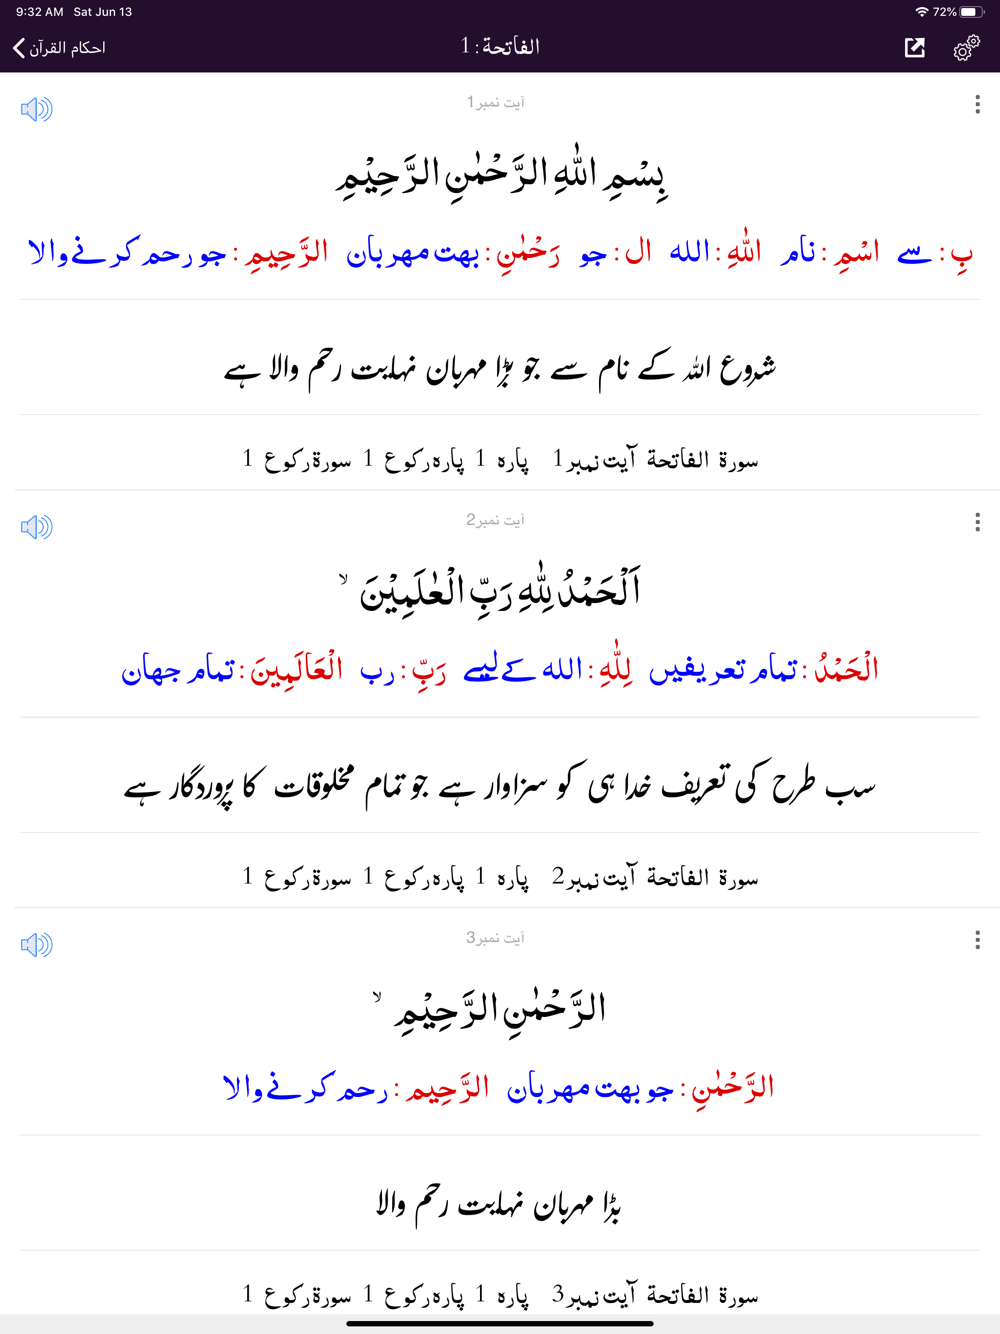 9:32 AM Sat Jun 13 72%
احكام القرآن الفاتحة : 1
آیت نمبر1
بِسْمِ اللّٰهِ الرَّحْمٰنِ الرَّحِيْمِ
بِ : سے اسْمِ : نام اللّٰهِ : الله ال : جو رَحْمٰنِ : بهت مهربان الرَّحِيمِ : جو رحم كرنے والا
شروع اللہ کے نام سے جو بڑا مہربان نہایت رحم والا ہے
سورة الفاتحة آیت نمبر1 پاره 1 پاره ركوع 1 سورة ركوع 1
آیت نمبر2
اَلْحَمْدُ لِلّٰهِ رَبِّ الْعٰلَمِيْنَ ۙ
الْحَمْدُ : تمام تعریفیں لِلّٰهِ : الله كے لیے رَبِّ : رب الْعَالَمِينَ : تمام جهان
سب طرح کی تعریف خدا ہی کو سزاوار ہے جو تمام مخلوقات کا پروردگار ہے
سورة الفاتحة آیت نمبر2 پاره 1 پاره ركوع 1 سورة ركوع 1
آیت نمبر3
الرَّحْمٰنِ الرَّحِيْمِ ۙ
الرَّحْمٰنِ : جو بهت مهربان الرَّحِيمِ : رحم كرنے والا
بڑا مہربان نہایت رحم والا
سورة الفاتحة آیت نمبر3 پاره 1 پاره ركوع 1 سورة ركوع 1